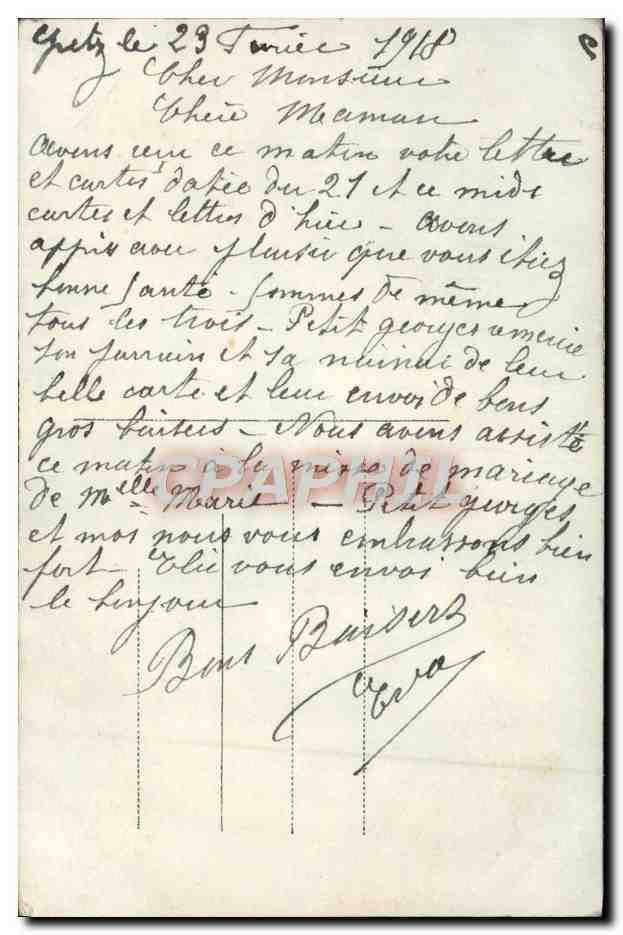 le 23 Février 1918
Cher Monsieur
Chère Maman
avons reçu ce matin votre lettre
et cartes datée du 21 et ce midi
cartes et lettres d'hier - avons
appris avec plaisir que vous étiez
bonne santé - sommes de même
tous les trois - Petit georges remercie
son parrain et sa de leur
belle carte et leur envoi de bons
gros baisers - Nous avons assisté
ce matin à la messe de mariage
de Melle Marie - Petit georges
et moi nous vous embrassons bien
fort - Elie vous envoi bien
le bonjour
Bons Baisers
Eva
CPAPHIL